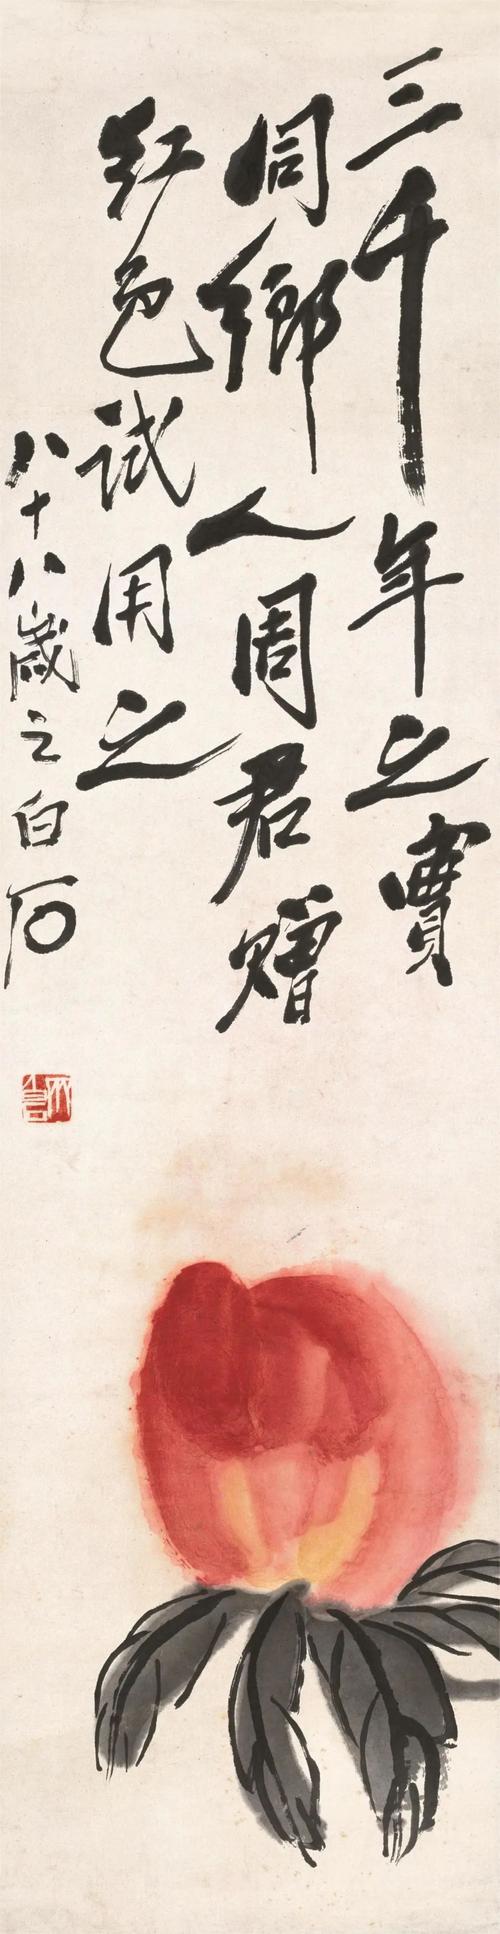 三千年之實
同鄉人周君贈
红色试用之
八十八歲之白石